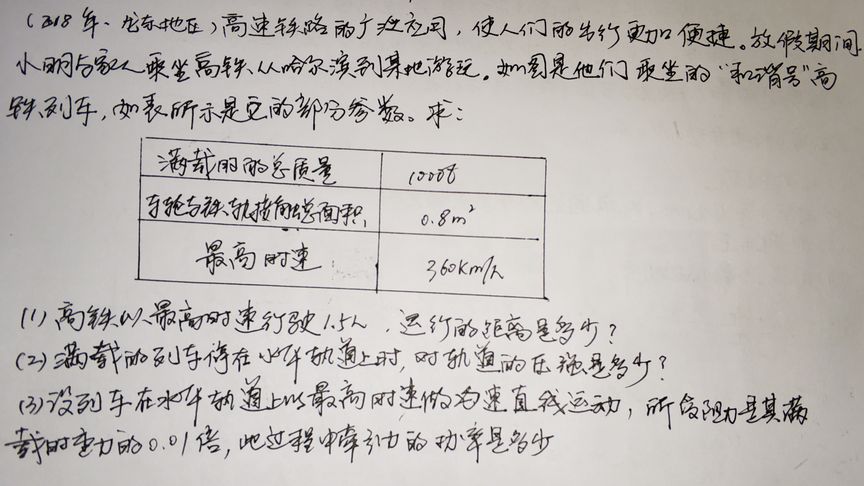 (2018年·龙东地区)高速铁路的广泛应用,使人们的出行更加便捷。放假期间
小明与家人乘坐高铁从哈尔滨到某地游玩。如图是他们乘坐的“和谐号”高
铁列车,如表所示是它的部分参数。求:
满载时的总质量 1000t
车轮与铁轨接触总面积 0.8m²
最高时速 360km/h
(1)高铁以最高时速行驶1.5h,运行的距离是多少?
(2)满载的列车停在水平轨道上时,对轨道的压强是多少?
(3)设列车在水平轨道上以最高时速做匀速直线运动,所受阻力是其满
载时重力的0.01倍,此过程中牵引力的功率是多少